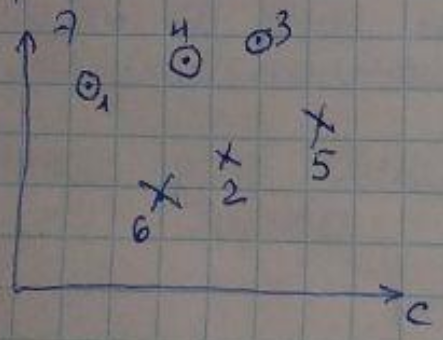 7
4 3
1
5
2
6
C